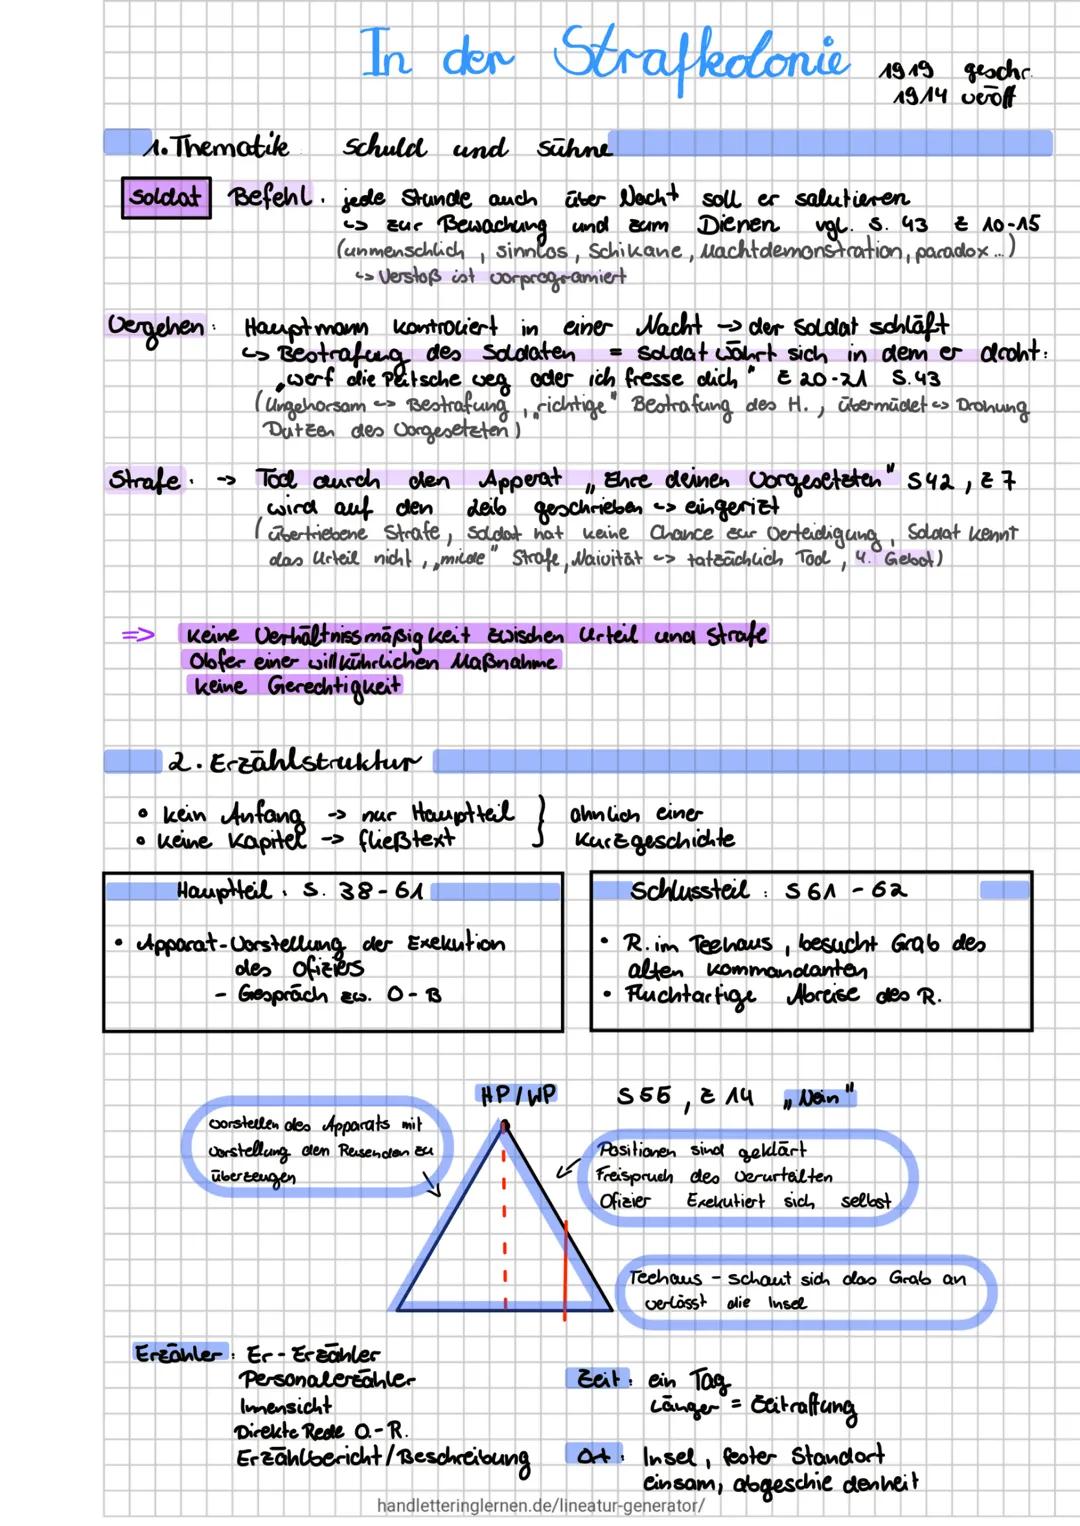 In der Strafkolonie
1919 geschr.
1914 veröff
1. Thematik Schuld und Sühne
Soldat Befehl: jede Stunde auch über Nacht soll er salutieren
↳ zur Bewachung und zum Dienen vgl. S. 43 Z 10-15
(unmenschlich, sinnlos, Schikane, Machtdemonstration, paradox...)
↳ Verstoß ist vorprogramiert
Vergehen: Hauptmann kontroliert in einer Nacht → der Soldat schläft
↳ Bestrafung des Soldaten = Soldat währt sich in dem er droht:
„werf die Peitsche weg oder ich fresse dich" Z 20-21 S.43
(Ungehorsam ↔ Bestrafung, „richtige" Bestrafung des H., übermüdet ↔ Drohung
Dutzen des Vorgesetzten)
Strafe: → Tod durch den Apperat „Ehre deinen Vorgesetzten" S42, Z 7
wird auf den Leib geschrieben ↔ eingerizt
(übertriebene Strafe, Soldat hat keine Chance zur Verteidigung, Soldat kennt
das Urteil nicht, „milde" Strafe, Naivität ↔ tatsächlich Tod, 4. Gebot)
=> Keine Verhältnissmäßigkeit zwischen Urteil und Strafe
Opfer einer willkührlichen Maßnahme
keine Gerechtigkeit
2. Erzählstruktur
• kein Anfang → nur Hauptteil } ähnlich einer
• keine Kapitel → fließtext Kurzgeschichte
Hauptteil: S. 38-61
• Apparat-Vorstellung der Exekution
des Ofiziers
- Gespräch zw. O-B
Schlussteil: S 61 - 62
• R. im Teehaus, besucht Grab des
alten Kommandanten
• Fluchtartige Abreise des R.
HP/WP S 55, Z 14 „Nein"
vorstellen des Apparats mit
Vorstellung den Reisenden zu
überzeugen
Positionen sind geklärt
Freispruch des Verurtailten
Ofizier Exekutiert sich selbst
Teehaus - schaut sich das Grab an
verlässt die Insel
Erzähler: Er-Erzähler
Personalerzähler
Innensicht
Direkte Rede O.-R.
Erzählbericht/Beschreibung
Zeit: ein Tag
Länger = Zeitraffung
Ort: Insel, fester Standort
einsam, abgeschiedenheit
handletteringlernen.de/lineatur-generator/